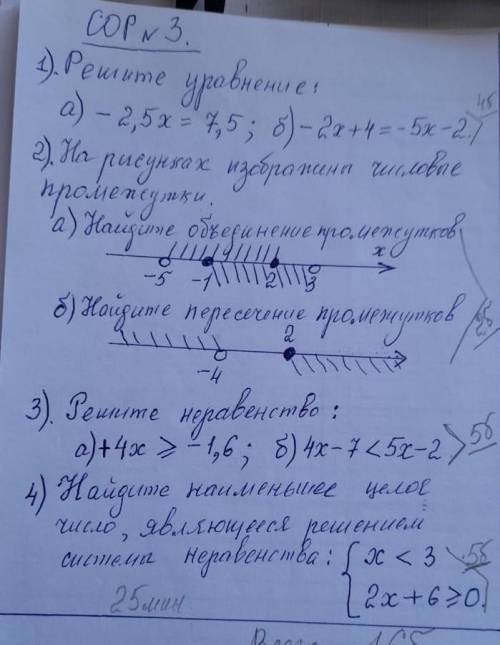 СОР № 3.
1). Решите уравнение:
а) - 2,5x = 7,5; б) - 2x+4 = -5x-2. 4б
2). На рисунках изображины числовые
промежутки.
а) Найдите объединение промежутков
x
-5 -1 2 3
б) Найдите пересечение промежутков
2
-4
3). Решите неравенство:
а) +4x ⩾ -1,6; б) 4x-7 < 5x-2 5б
4) Найдите наименьшее целое
число, являющееся решением
системы неравенства: { x < 3 5б
2x+6 ⩾ 0.
25 мин